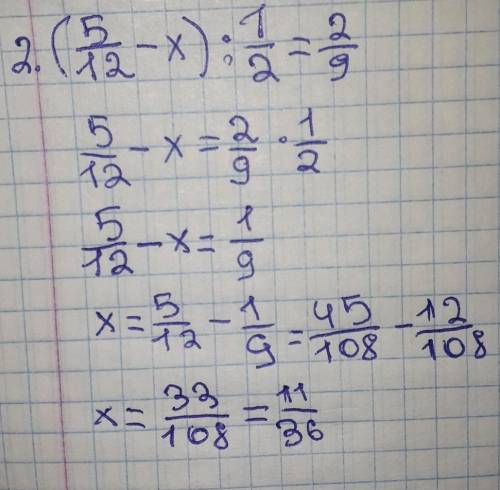 2. (5/12 - x) : 1/2 = 2/9
5/12 - x = 2/9 · 1/2
5/12 - x = 1/9
x = 5/12 - 1/9 = 45/108 - 12/108
x = 33/108 = 11/36